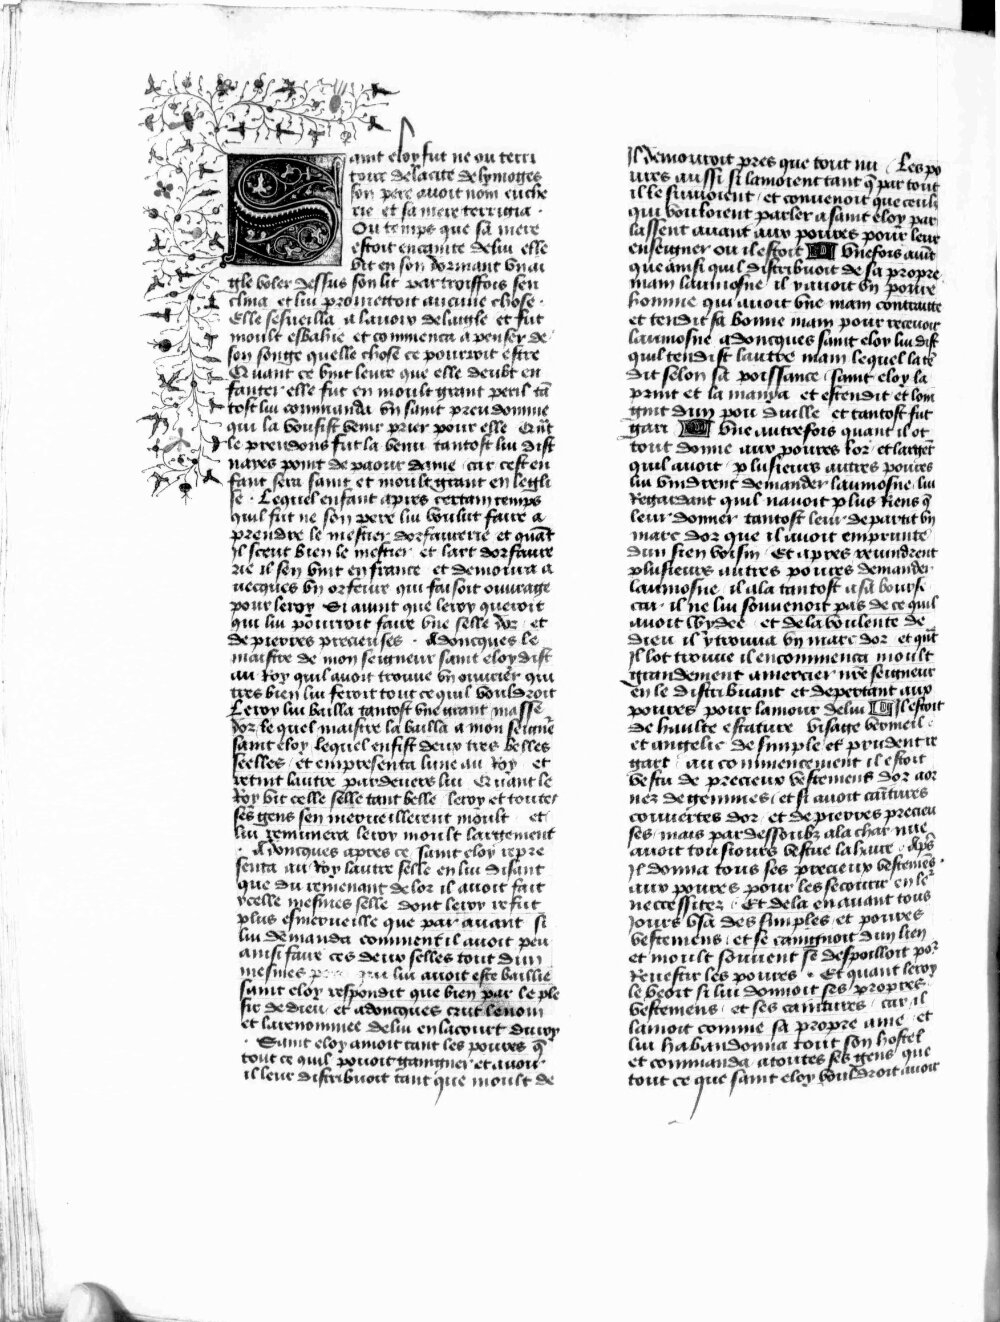 Saint eloy fut ne ou terri
toire de la cite de lymoges
son pere avoit nom euche
rie et sa mere terrigia .
Ou temps que sa mere
estoit encainte de lui elle
vit en son dormant un ai
gle voler dessus son lit par trois fois sen
clina et lui promettoit aucune chose .
Elle sesveilla a la voix de laigle et fut
moult esbahie et commenca a penser de
son songe quelle chose ce pourroit estre
Quant ce vint leure que elle deubt en
fanter elle fut en moult grant peril tā
tost lui commanda un saint preudomme
qui la voufist venir prier pour elle Quāt
le preudons fut la venu tantost lui dist
nayes point de paour dame car cest en
fant sera saint et moult grant en legli
se . Lequel enfant apres certain temps
quil fut ne son pere lui voulut faire a
prendre le mestier dorfaverie et quāt
Il sceut bien le mestier et lart dorfave
rie il sen vint en france et demoura a
vecques un orfevre qui faisoit ouvrage
pour le roy Si avint que le roy queroit
qui lui pourroit faire une selle dor et
de pierres precieuses . Adoncques le
maistre de mon seigneur saint eloy dist
au Roy quil avoit trouve un ouvrier qui
tres bien lui feroit tout ce quil vouldroit
Le roy lui bailla tantost une grant masse
dor le quel maistre la bailla a mon seignr̄
saint eloy lequel en fist deux tres belles
seelles et en presenta lune au Roy et
retint lautre par devers lui Quant le
Roy vit celle selle tant belle le roy et toutes
ses gens sen merveillerent moult et
lui remunera le roy moult largement
. Adoncques apres ce saint eloy repre
senta au Roy lautre selle en lui disant
que du remenant de lor il avoit fait
ycelle mesmes selle dont le roy refut
plus esmerveille que par avant si
lui demanda comment il avoit peu
ainsi faire ces deux selles tout dun
mesmes lui avoit este baillie
saint eloy respondit que bien par le ple
sir de dieu et adoncques crut le nom
et la renommee de lui en la court du roy
. Saint eloy amoit tant les povres q̄
tout ce quil povoit gaingner et avoir
il leur distribuoit tant que moult de
Il demouroit pres que tout nu Les po
vres aussi si lamoient tant q̄ par tout
il le suivoient et convenoit que ceulx
qui vouloient parler a saint eloy par
lassent avant aux povres pour leur
enseigner ou il estoit Une fois avīt
que ainsi quil distribuoit de sa propre
main laumosne il y avoit un povre
homme qui avoit une main contraitte
et tendit sa bonne main pour recevoir
laumosne adoncques saint eloy lui dist
quil tendist lautre main lequel la tē
dit selon sa poissance saint eloy la
print et la mania et estendit et loin
gnit dun pou duille et tantost fut
gari Une autre fois quant il ot
tout donne aux povres lor et largēt
quil avoit plusieurs autres povres
lui vindrent demander laumosne lui
Regardant quil navoit plus Riens q̄
leur donner tantost leur departit un
marc dor que il avoit emprunte
dun sien voisin Et apres revindrent
plusieurs autres povres demander
laumosne il ala tantost a sa bourse
car il ne lui souvenoit pas de ce quil
avoit wydee et de la voulente de
dieu il y trouva un marc dor et quāt
Il lot trouve il encommenca moult
grandement a mercier nr̄e seigneur
en le distribuant et departant aux
povres pour lamour de lui Il estoit
de haulte estature visage vermeil
et angelic de simple et prudent re
gart au commencement il estoit
vestu de precieux vestemens dor aor
nez de gemmes et si avoit caintures
couvertes dor et de pierres precieu
ses mais par dessoubz a la char nue
avoit tousiours vestue la haire Aps̄
Il donna tous ses precieux vestemēs
aux povres pour les secourir en le
neccessitez Et de la en avant tous
Jours usa des simples et povres
vestemens et se caingnoit dun lien
et moult souvent se despoilloit por
Revestir les povres . Et quant le roy
le veoit si lui donnoit ses propres
vestemens et ses caintures car il
lamoit comme sa propre ame et
lui habandonna tout son hostel
et commanda a toutes ses gens que
tout ce que saint eloy vouldroit avoir